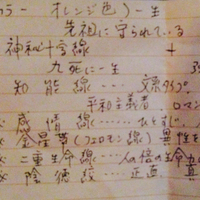 オレンジ色)一生
先祖に守られている
神秘十字線 十
九死に一生
知能線……
平和主義者 ロマン
感情線……
金星帯(フェロモン線)異性を
二重生命線……人の倍の生命力
陰徳紋……正直